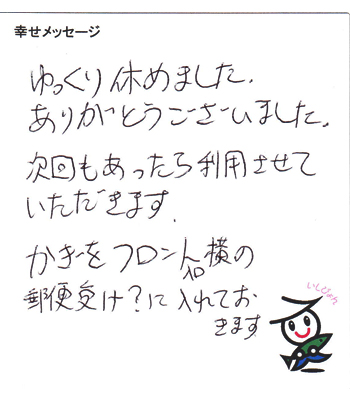 幸せメッセージ
ゆっくり休めました.
ありがとうございました.
次回もあったら利用させて
いただきます.
かぎをフロント横の
入口
郵便受け?に入れてお
きます